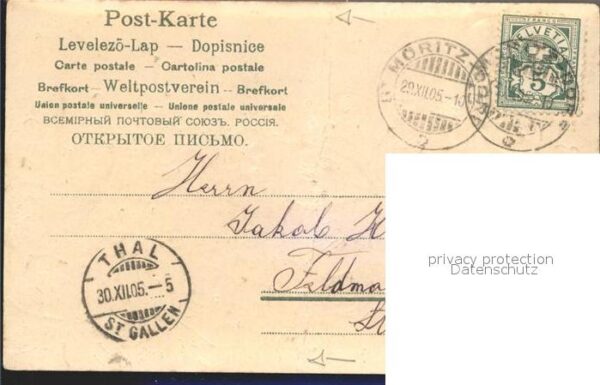 Post-Karte
Levelező-Lap — Dopisnice
Carte postale — Cartolina postale
Brefkort — Weltpostverein — Brefkort
Union postale universelle — Unione postale universale
ВСЕМІРНЫЙ ПОЧТОВЫЙ СОЮЗЪ. РОССІЯ.
ОТКРЫТОЕ ПИСЬМО.
ST. MORITZ-DORF
29.XII.05.-10
HELVETIA
FRANCO
5
Herrn
Jakob H
Feldma
THAL
30.XII.05.-5
ST GALLEN
privacy protection
Datenschutz